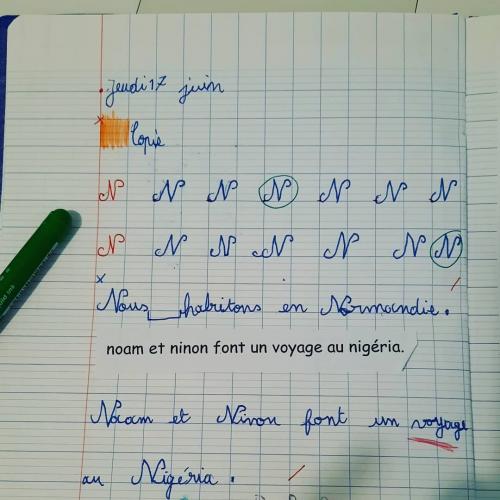 jeudi 17 juin
Copie
N N N N N N N
N N N N N N N
Nous habitons en Normandie.
noam et ninon font un voyage au nigéria.
Noam et Ninon font un voyage
au Nigéria.